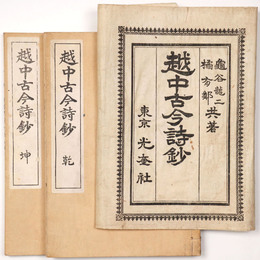 龜谷龍二
橘方郁
共著
越中古今詩鈔
東京 光奎社
越中古今詩鈔 乾
越中古今詩鈔 坤